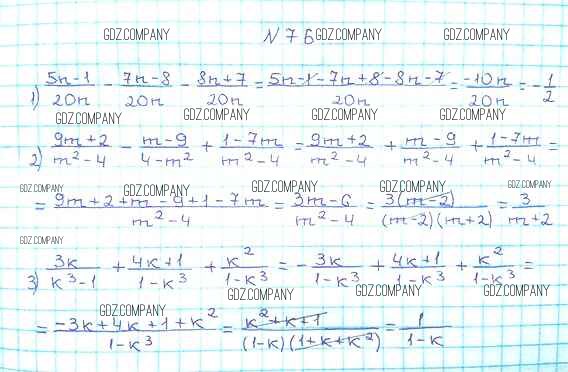 GDZ.COMPANY N 76 GDZ.COMPANY GDZ.COMPANY
1) (5n-1)/(20n) - (7n-8)/(20n) - (8n+7)/(20n) = (5n-1-7n+8-8n-7)/(20n) = (-10n)/(20n) = -1/2
GDZ.COMPANY GDZ.COMPANY GDZ.COMPANY GDZ.COMPANY
2) (9m+2)/(m²-4) - (m-9)/(4-m²) + (1-7m)/(m²-4) = (9m+2)/(m²-4) + (m-9)/(m²-4) + (1-7m)/(m²-4) =
GDZ.COMPANY GDZ.COMPANY GDZ.COMPANY GDZ.COMPANY GDZ.COMPANY
= (9m+2+m-9+1-7m)/(m²-4) = (3m-6)/(m²-4) = (3(m-2))/((m-2)(m+2)) = 3/(m+2)
GDZ.COMPANY GDZ.COMPANY GDZ.COMPANY GDZ.COMPANY
3) (3k)/(k³-1) + (4k+1)/(1-k³) + (k²)/(1-k³) = - (3k)/(1-k³) + (4k+1)/(1-k³) + (k²)/(1-k³) =
GDZ.COMPANY GDZ.COMPANY GDZ.COMPANY GDZ.COMPANY
= (-3k+4k+1+k²)/(1-k³) = (k²+k+1)/((1-k)(1+k+k²)) = 1/(1-k)